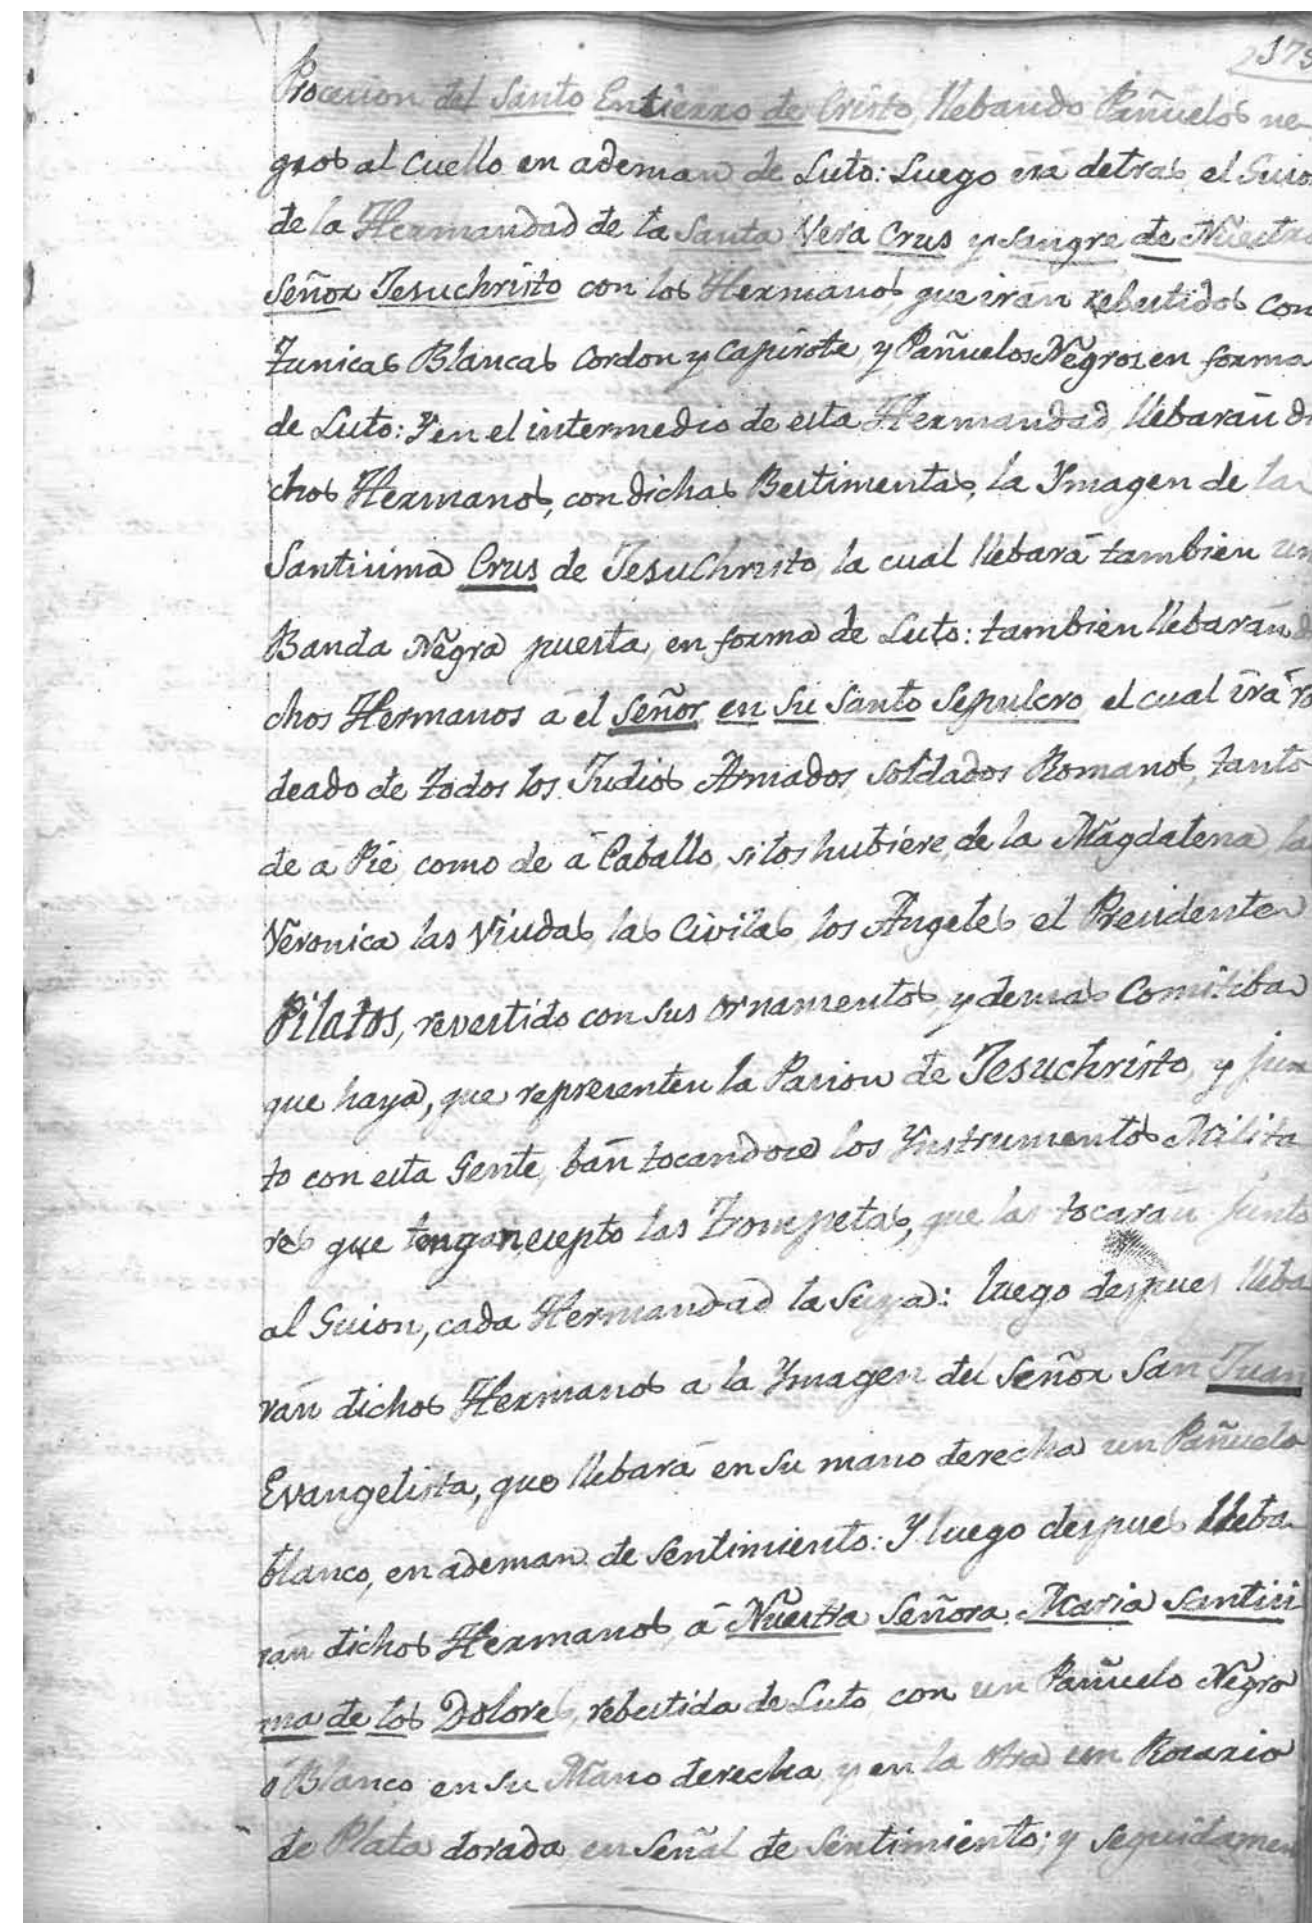 173
Procesion del Santo Entierro de Cristo, llebando Pañuelos ne-
gros al Cuello en ademan de Luto: Luego irá detras el Guio
de la Hermandad de la Santa Vera Crus y Sangre de Nuestro
Señor Jesuchristo con los Hermanos, que irán rebestidos con
Tunicas Blancas Cordon y Capirote, y Pañuelos Negros en forma
de Luto: Y en el intermedio de esta Hermandad llebarán di
chos Hermanos, con dichas Bestimentas, la Ymagen de la
Santisima Crus de JesuChristo, la cual llebará tambien un
Banda Negra puesta, en forma de Luto: tambien llebarán di
chos Hermanos á el Señor en su Santo Sepulcro el cual irá ro
deado de todos los Judios Armados, Soldados Romanos, tanto
de á Pie, como de á Caballo, si los hubiére, de la Magdalena, la
Veronica, las Viudas, las Civilas, los Angeles el Presidente
Pilatos, revestido con sus ornamentos, y demas Comitiba
que haya, que representen la Pasion de Jesuchristo, y jun
to con esta Gente, bán tocandoce los Ynstrumentos Milita
res que tengan, ecepto las Trompetas, que las tocarán junto
al Guion, cada Hermandad la Suya: luego despues lleba
rán dichos Hermanos a la Ymagen del Señor San Juan
Evangelista, que llebará en su mano derecha un Pañuelo
blanco, en ademan de Sentimiento: Y luego despues lleba
rán dichos Hermanos, á Nuestra Señora Maria Santisi
ma de los Dolores, rebestida de Luto con un Pañuelo Negro
ó Blanco en su Mano derecha, y en la otra un Rosario
de Plata dorada, en Señal de Sentimiento; y seguidamen